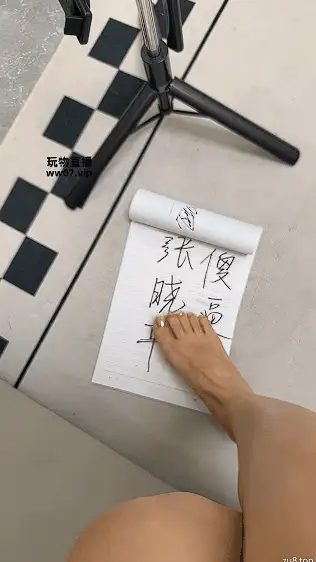 玩物直播
ww07.vip
张
晓
傻
逼
zu8.top